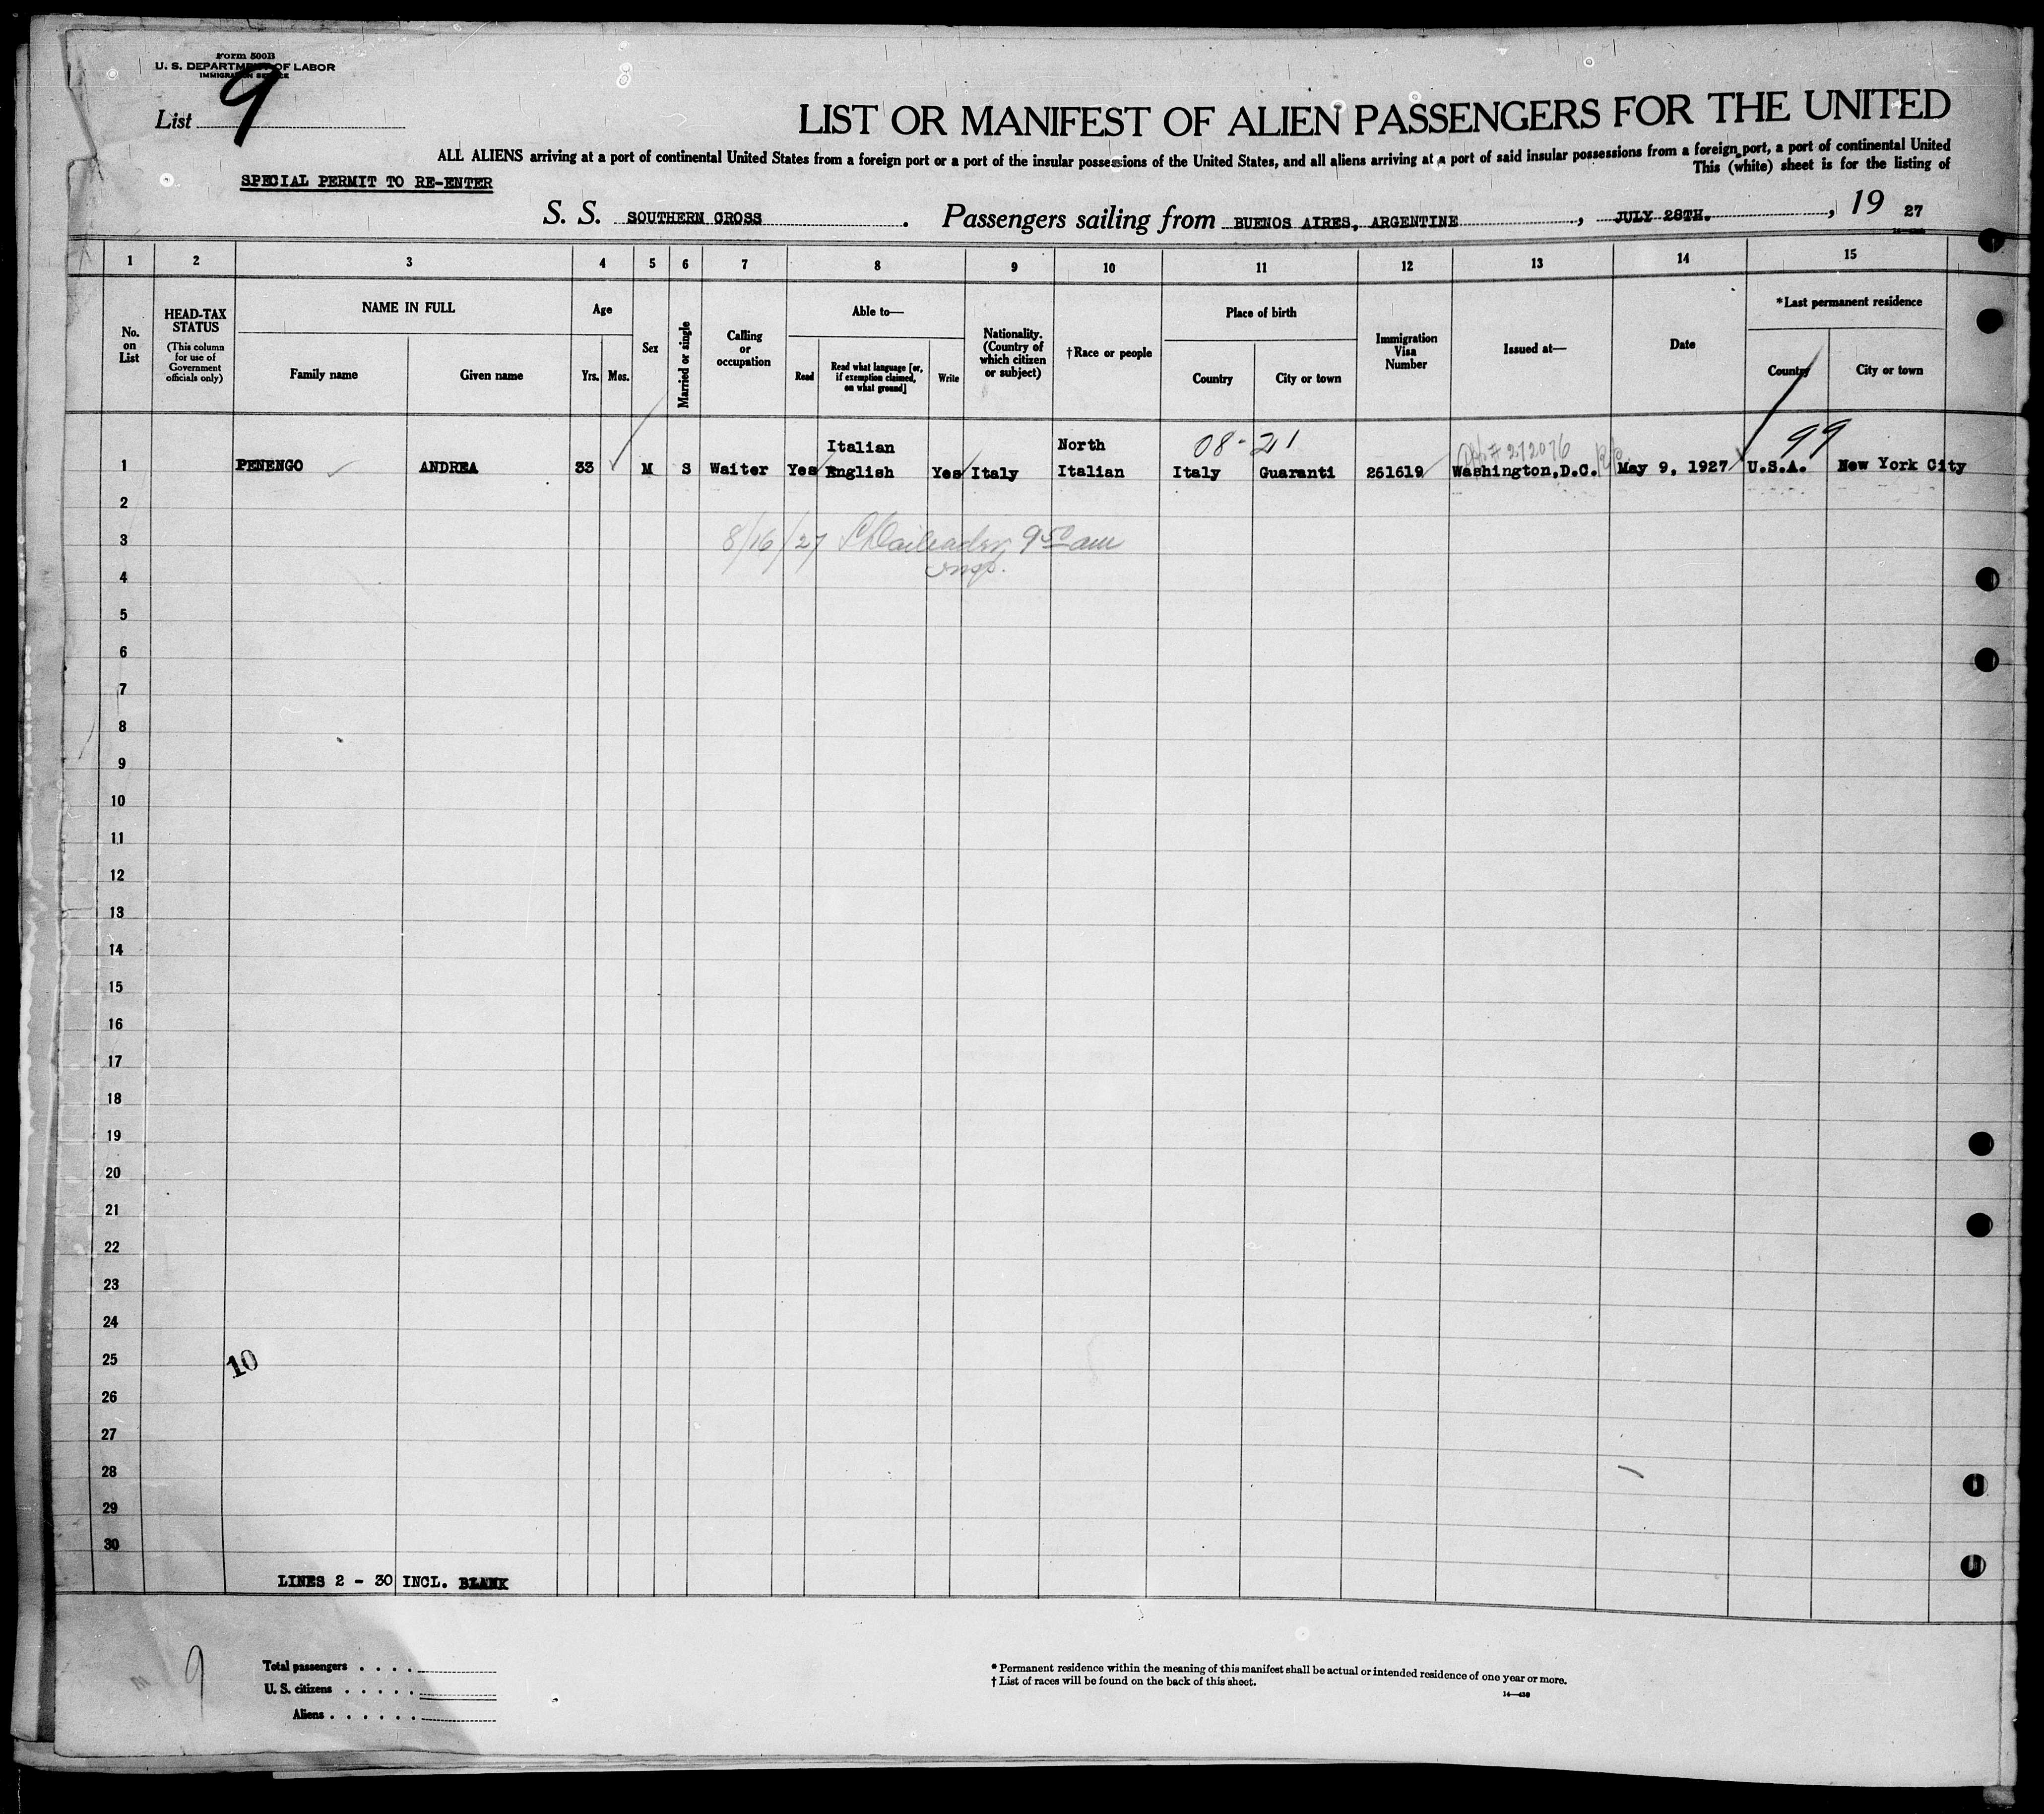 Form 500B
U. S. DEPARTMENT OF LABOR
IMMIGRATION SERVICE
List 9
LIST OR MANIFEST OF ALIEN PASSENGERS FOR THE UNITED
ALL ALIENS arriving at a port of continental United States from a foreign port or a port of the insular possessions of the United States, and all aliens arriving at a port of said insular possessions from a foreign port, a port of continental United
This (white) sheet is for the listing of
SPECIAL PERMIT TO RE-ENTER
S. S. SOUTHERN CROSS. Passengers sailing from BUENOS AIRES, ARGENTINE, JULY 28TH., 19 27
1 2 3 4 5 6 7 8 9 10 11 12 13 14 15
No. on List
HEAD-TAX STATUS
(This column for use of Government officials only)
NAME IN FULL
Family name
Given name
Age
Yrs. Mos.
Sex
Married or single
Calling or occupation
Able to—
Read
Read what language [or, if exemption claimed, on what ground]
Write
Nationality. (Country of which citizen or subject)
†Race or people
Place of birth
Country
City or town
Immigration Visa Number
Issued at—
Date
*Last permanent residence
Country
City or town
Italian North 08-21 #272076 99
1 PENENGO ANDREA 33 M S Waiter Yes English Yes Italy Italian Italy Guaranti 261619 Washington,D.C. May 9, 1927 U.S.A. New York City
2
8/16/27 9 50 am
3
insp.
4
5
6
7
8
9
10
11
12
13
14
15
16
17
18
19
20
21
22
23
24
25 10
26
27
28
29
30
LINES 2 - 30 INCL. BLANK
9
Total passengers . . . .
U. S. citizens . . . . .
Aliens . . . . . .
* Permanent residence within the meaning of this manifest shall be actual or intended residence of one year or more.
† List of races will be found on the back of this sheet.